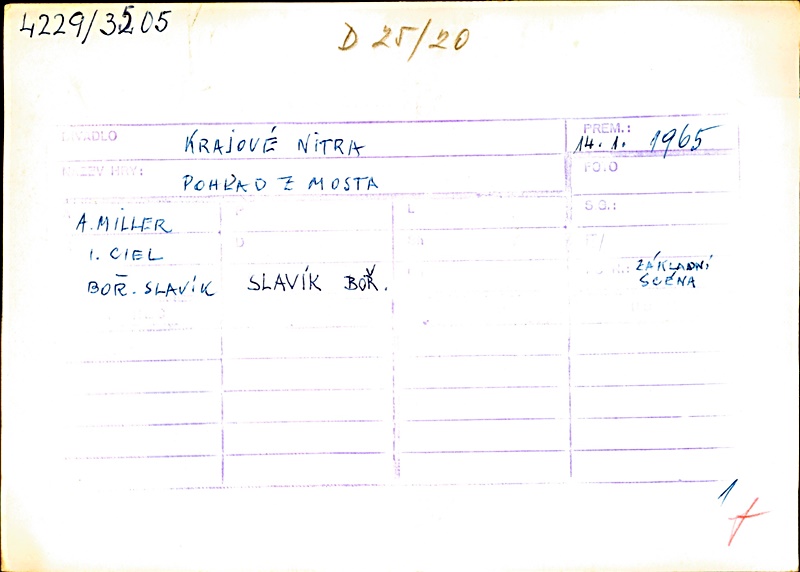 4229/3505
D 25/20
DIVADLO KRAJOVÉ NITRA PREM.: 14. 1. 1965
NÁZEV HRY: POHĽAD Z MOSTA FO.O
A. MILLER S.O.:
I. CIEL
BOŘ. SLAVÍK SLAVÍK BOŘ. ZÁKLADNÍ
SCÉNA
1